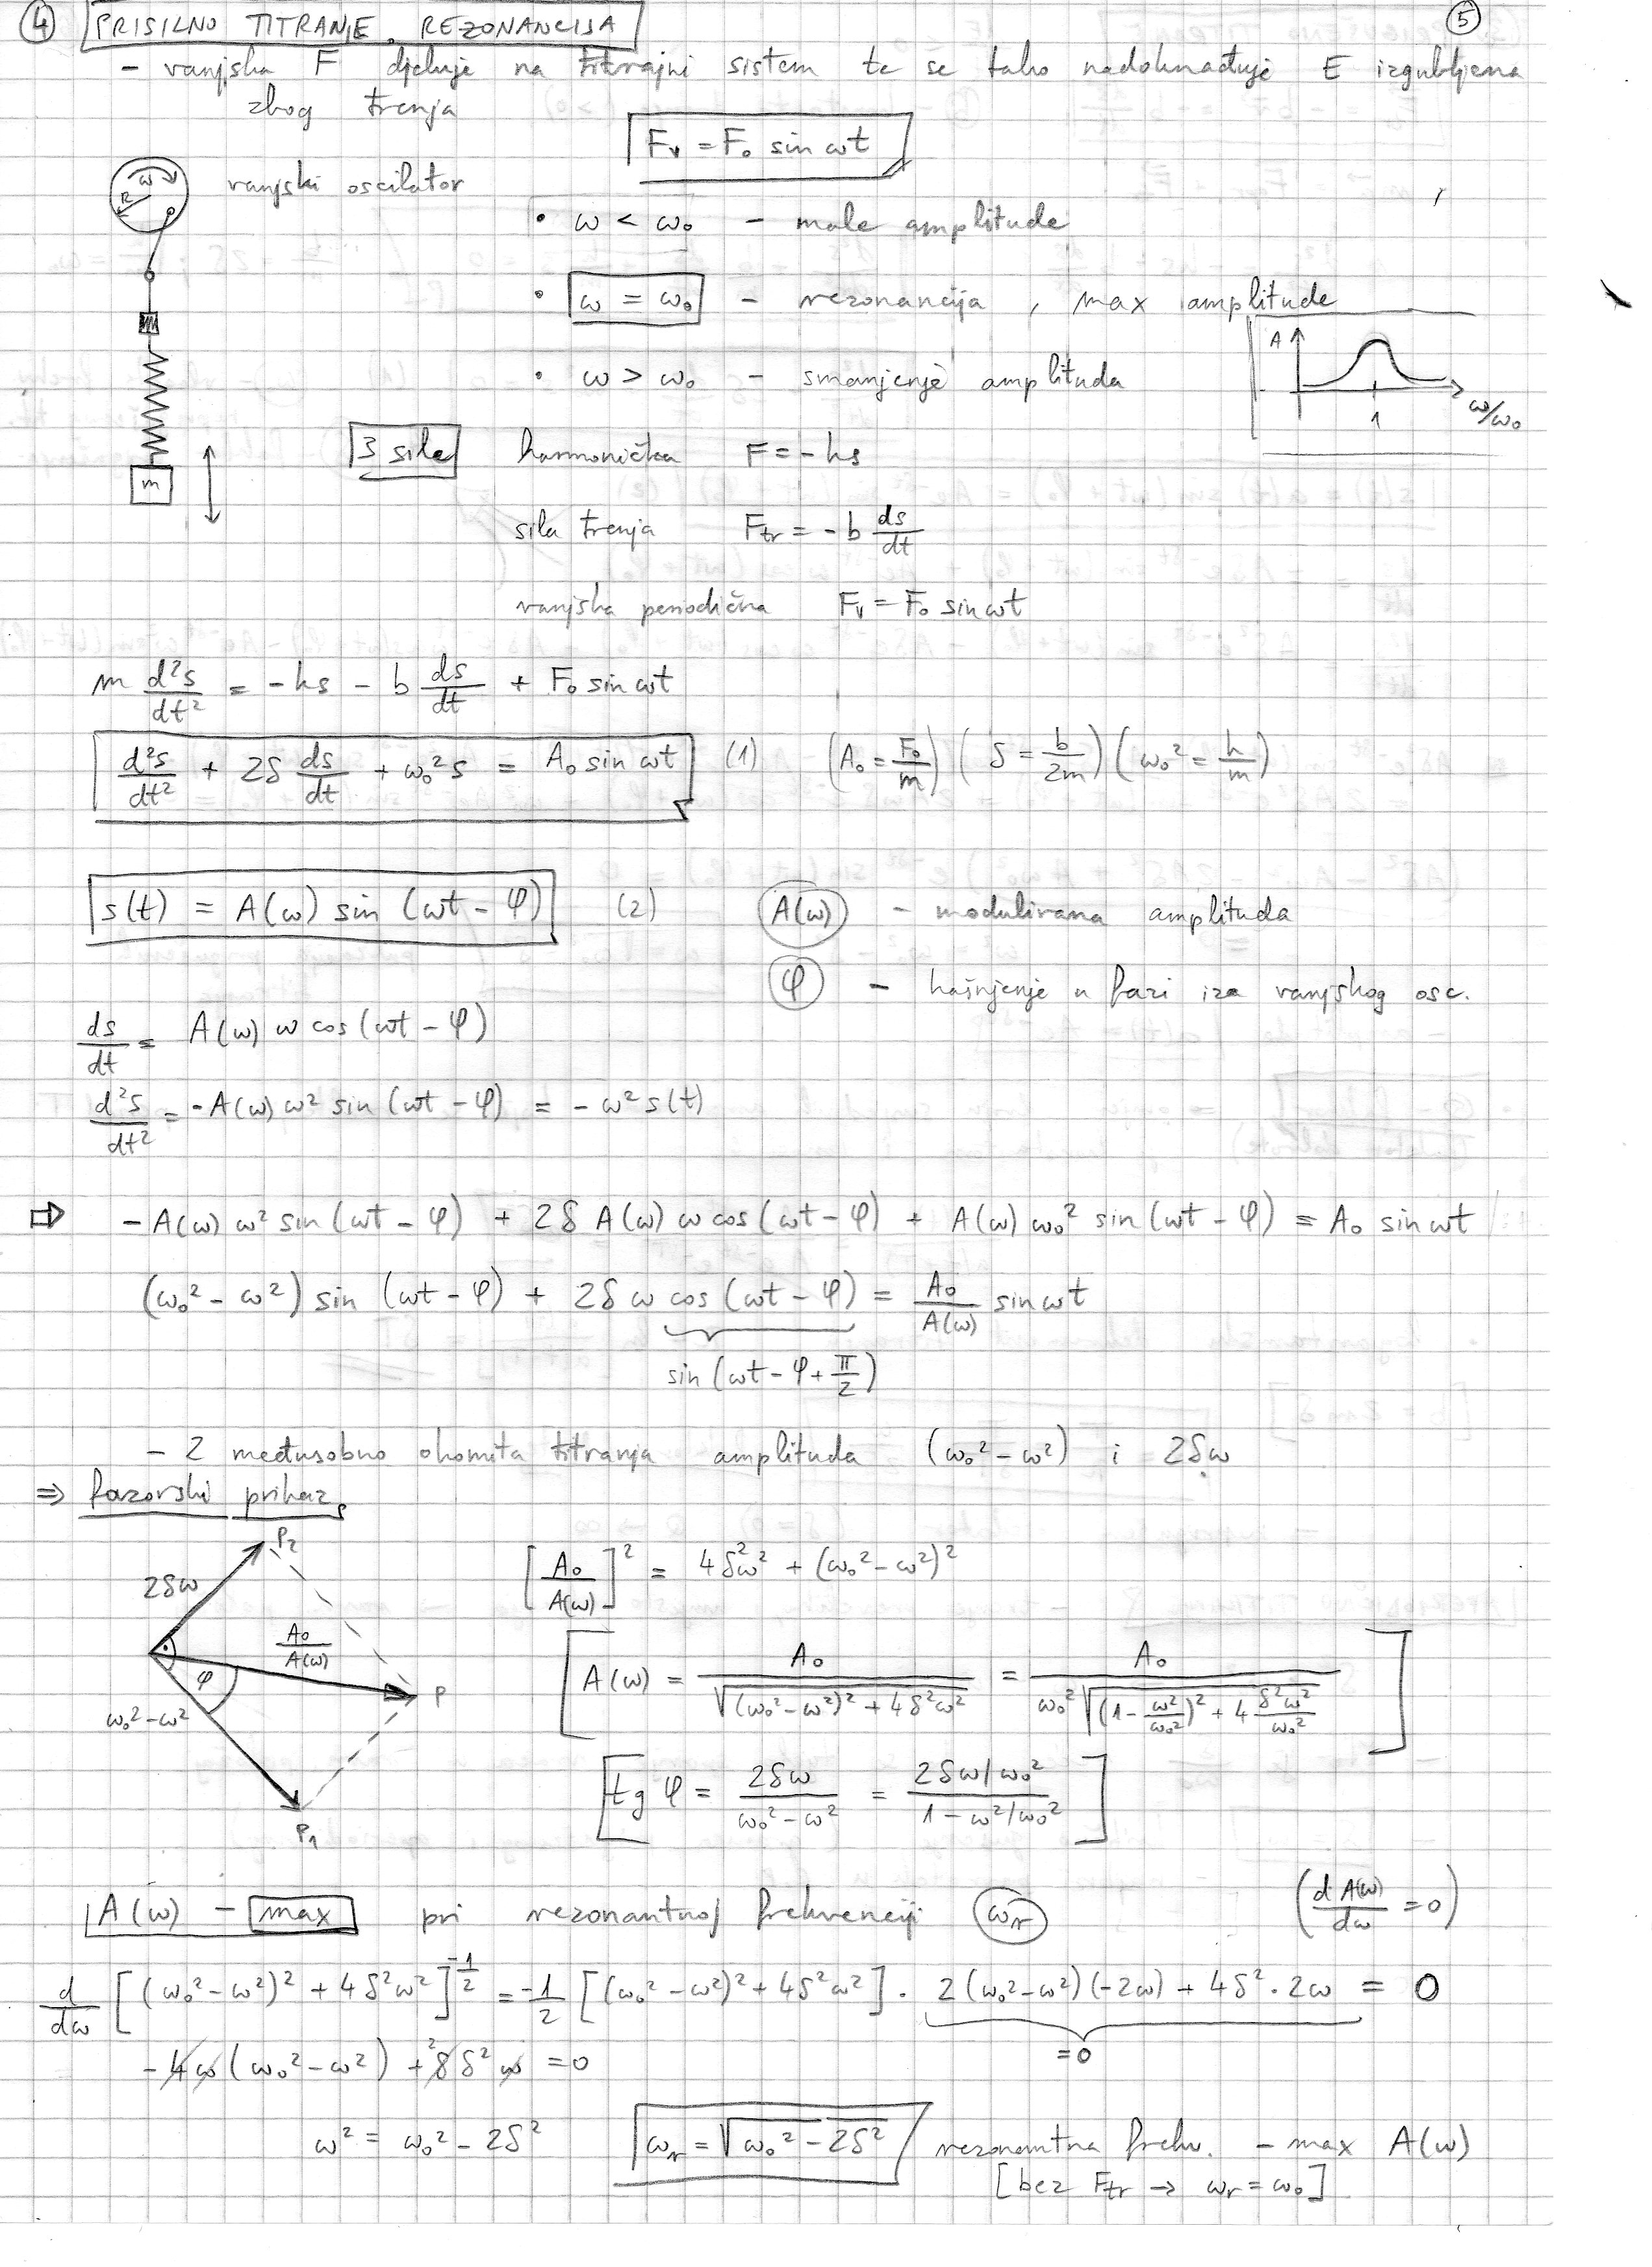 ④ PRISILNO TITRANJE. REZONANCIJA ⑤
- vanjska F djeluje na titrajni sistem te se tako nadoknađuje E izgubljena
zbog trenja
Fv = F₀ sin ωt
ω
R
vanjski oscilator
• ω < ω₀ - male amplitude
• ω = ω₀ - rezonancija, max amplitude
• ω > ω₀ - smanjenje amplituda
A
1
ω/ω₀
m
3 sile harmonička F = -ks
sila trenja Ftr = -b ds/dt
vanjska periodična Fv = F₀ sin ωt
m d²s/dt² = -ks - b ds/dt + F₀ sin ωt
d²s/dt² + 2δ ds/dt + ω₀² s = A₀ sin ωt (1) (A₀ = F₀/m) (δ = b/2m) (ω₀² = k/m)
s(t) = A(ω) sin (ωt - φ) (2) A(ω) - modulirana amplituda
φ - kašnjenje u fazi iza vanjskog osc.
ds/dt = A(ω) ω cos (ωt - φ)
d²s/dt² = -A(ω) ω² sin (ωt - φ) = -ω² s(t)
⇒ -A(ω) ω² sin (ωt - φ) + 2δ A(ω) ω cos (ωt - φ) + A(ω) ω₀² sin (ωt - φ) = A₀ sin ωt
(ω₀² - ω²) sin (ωt - φ) + 2δ ω cos (ωt - φ) = A₀/A(ω) sin ωt
sin (ωt - φ + π/2)
- 2 međusobno okomita titranja amplituda (ω₀² - ω²) i 2δω
⇒ fazorski prikaz
P₂
2δω
A₀/A(ω)
φ
P
ω₀² - ω²
P₁
[A₀/A(ω)]² = 4δ²ω² + (ω₀² - ω²)²
A(ω) = A₀/√((ω₀² - ω²)² + 4δ²ω²) = A₀/ω₀²√((1 - ω²/ω₀²)² + 4 δ²ω²/ω₀²)
tg φ = 2δω/(ω₀² - ω²) = (2δω/ω₀²)/(1 - ω²/ω₀²)
A(ω) - max pri rezonantnoj frekvenciji ωr (dA(ω)/dω = 0)
d/dω [(ω₀² - ω²)² + 4δ²ω²]^(-1/2) = -1/2 [(ω₀² - ω²)² + 4δ²ω²] · 2(ω₀² - ω²)(-2ω) + 4δ² · 2ω = 0
= 0
-4ω (ω₀² - ω²) + ²8 δ² ω = 0
ω² = ω₀² - 2δ² ωr = √(ω₀² - 2δ²) rezonantna frekv. - max A(ω)
[bez Ftr → ωr = ω₀]